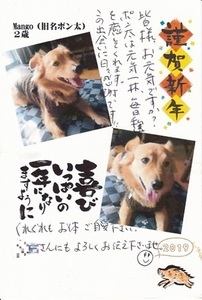 Mango（旧名ポン太）
2歳
謹賀新年
皆様、お元気ですか？
ポン太は元気一杯、毎日
を癒してくれます。
この出会いに日々感謝です！
喜び
いっぱいの
一年になり
ますように
くれぐれもお体ご自愛下さい。
さんにもよろしくお伝え下さいませ。
2019